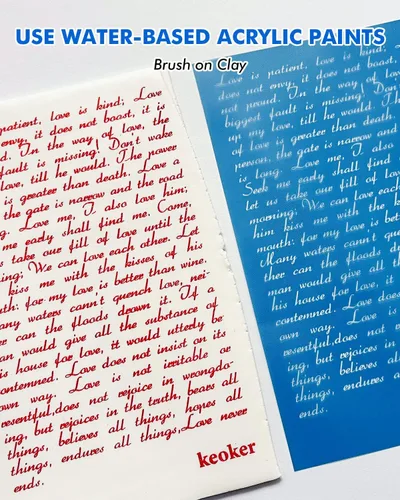 USE WATER-BASED ACRYLIC PAINTS
Brush on Clay
patient, love is kind; Love
envy, it does not boast, it is
d. In the way of love, the
fault is missing! Don't wake
love, till he would. The power
is greater than death. Love a
the gate is narrow and the road
g. Love me, I also love him;
me early shall find me. Come,
take our fill of love until the
ing; We can love each other. Let
kiss me with the kisses of his
uth: for my love is better than wine.
any waters cann't quench love, nei-
ther can the floods drown it. If a
an would give all the substance of
is house for love, it would utterly be
contemned. Love does not insist on its
own way. Love is not irritable or
resentful,does not rejoice in wrongdo-
ing, but rejoices in the truth, bears all
things, believes all things, hopes all
things, endures all things,Love never
ends.
keoker
Love is patient, love is kind;
does not envy, it does not boast,
not proud. In the way of
biggest fault is missing!
up my love, till he would.
of love is greater than death.
person, the gate is narrow and
is long. Love me, I also
Seek me early shall find
let us take our fill of
morning; We can love each
him kiss me with the
mouth: for my love is
Many waters cann't
ther can the floods
man would give all
his house for love, it
contemned. Love does
own way. Love
resentful,does not
ing, but rejoices in
things, believes all
things, endures all
ends.